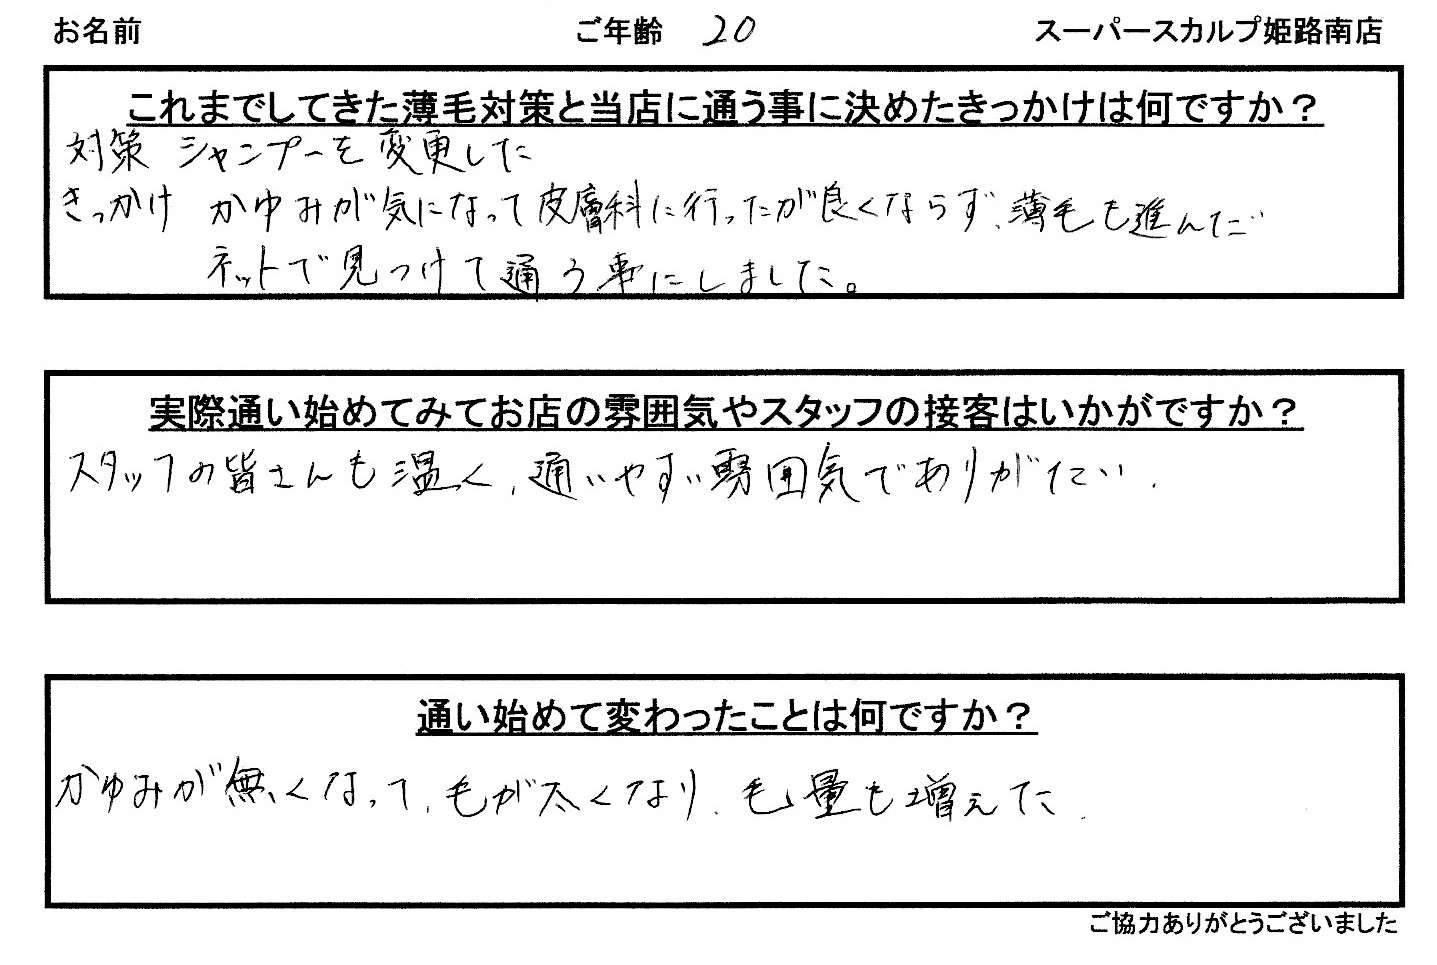 お名前 ご年齢 20 スーパースカルプ姫路南店
これまでしてきた薄毛対策と当店に通う事に決めたきっかけは何ですか？
対策 シャンプーを変更した
きっかけ かゆみが気になって皮膚科に行ったが良くならず、薄毛も進んだ
ネットで見つけて通う事にしました。
実際通い始めてみてお店の雰囲気やスタッフの接客はいかがですか？
スタッフの皆さんも温く、通いやすい雰囲気でありがたい.
通い始めて変わったことは何ですか？
かゆみが無くなって、毛が太くなり、毛量も増えた.
ご協力ありがとうございました